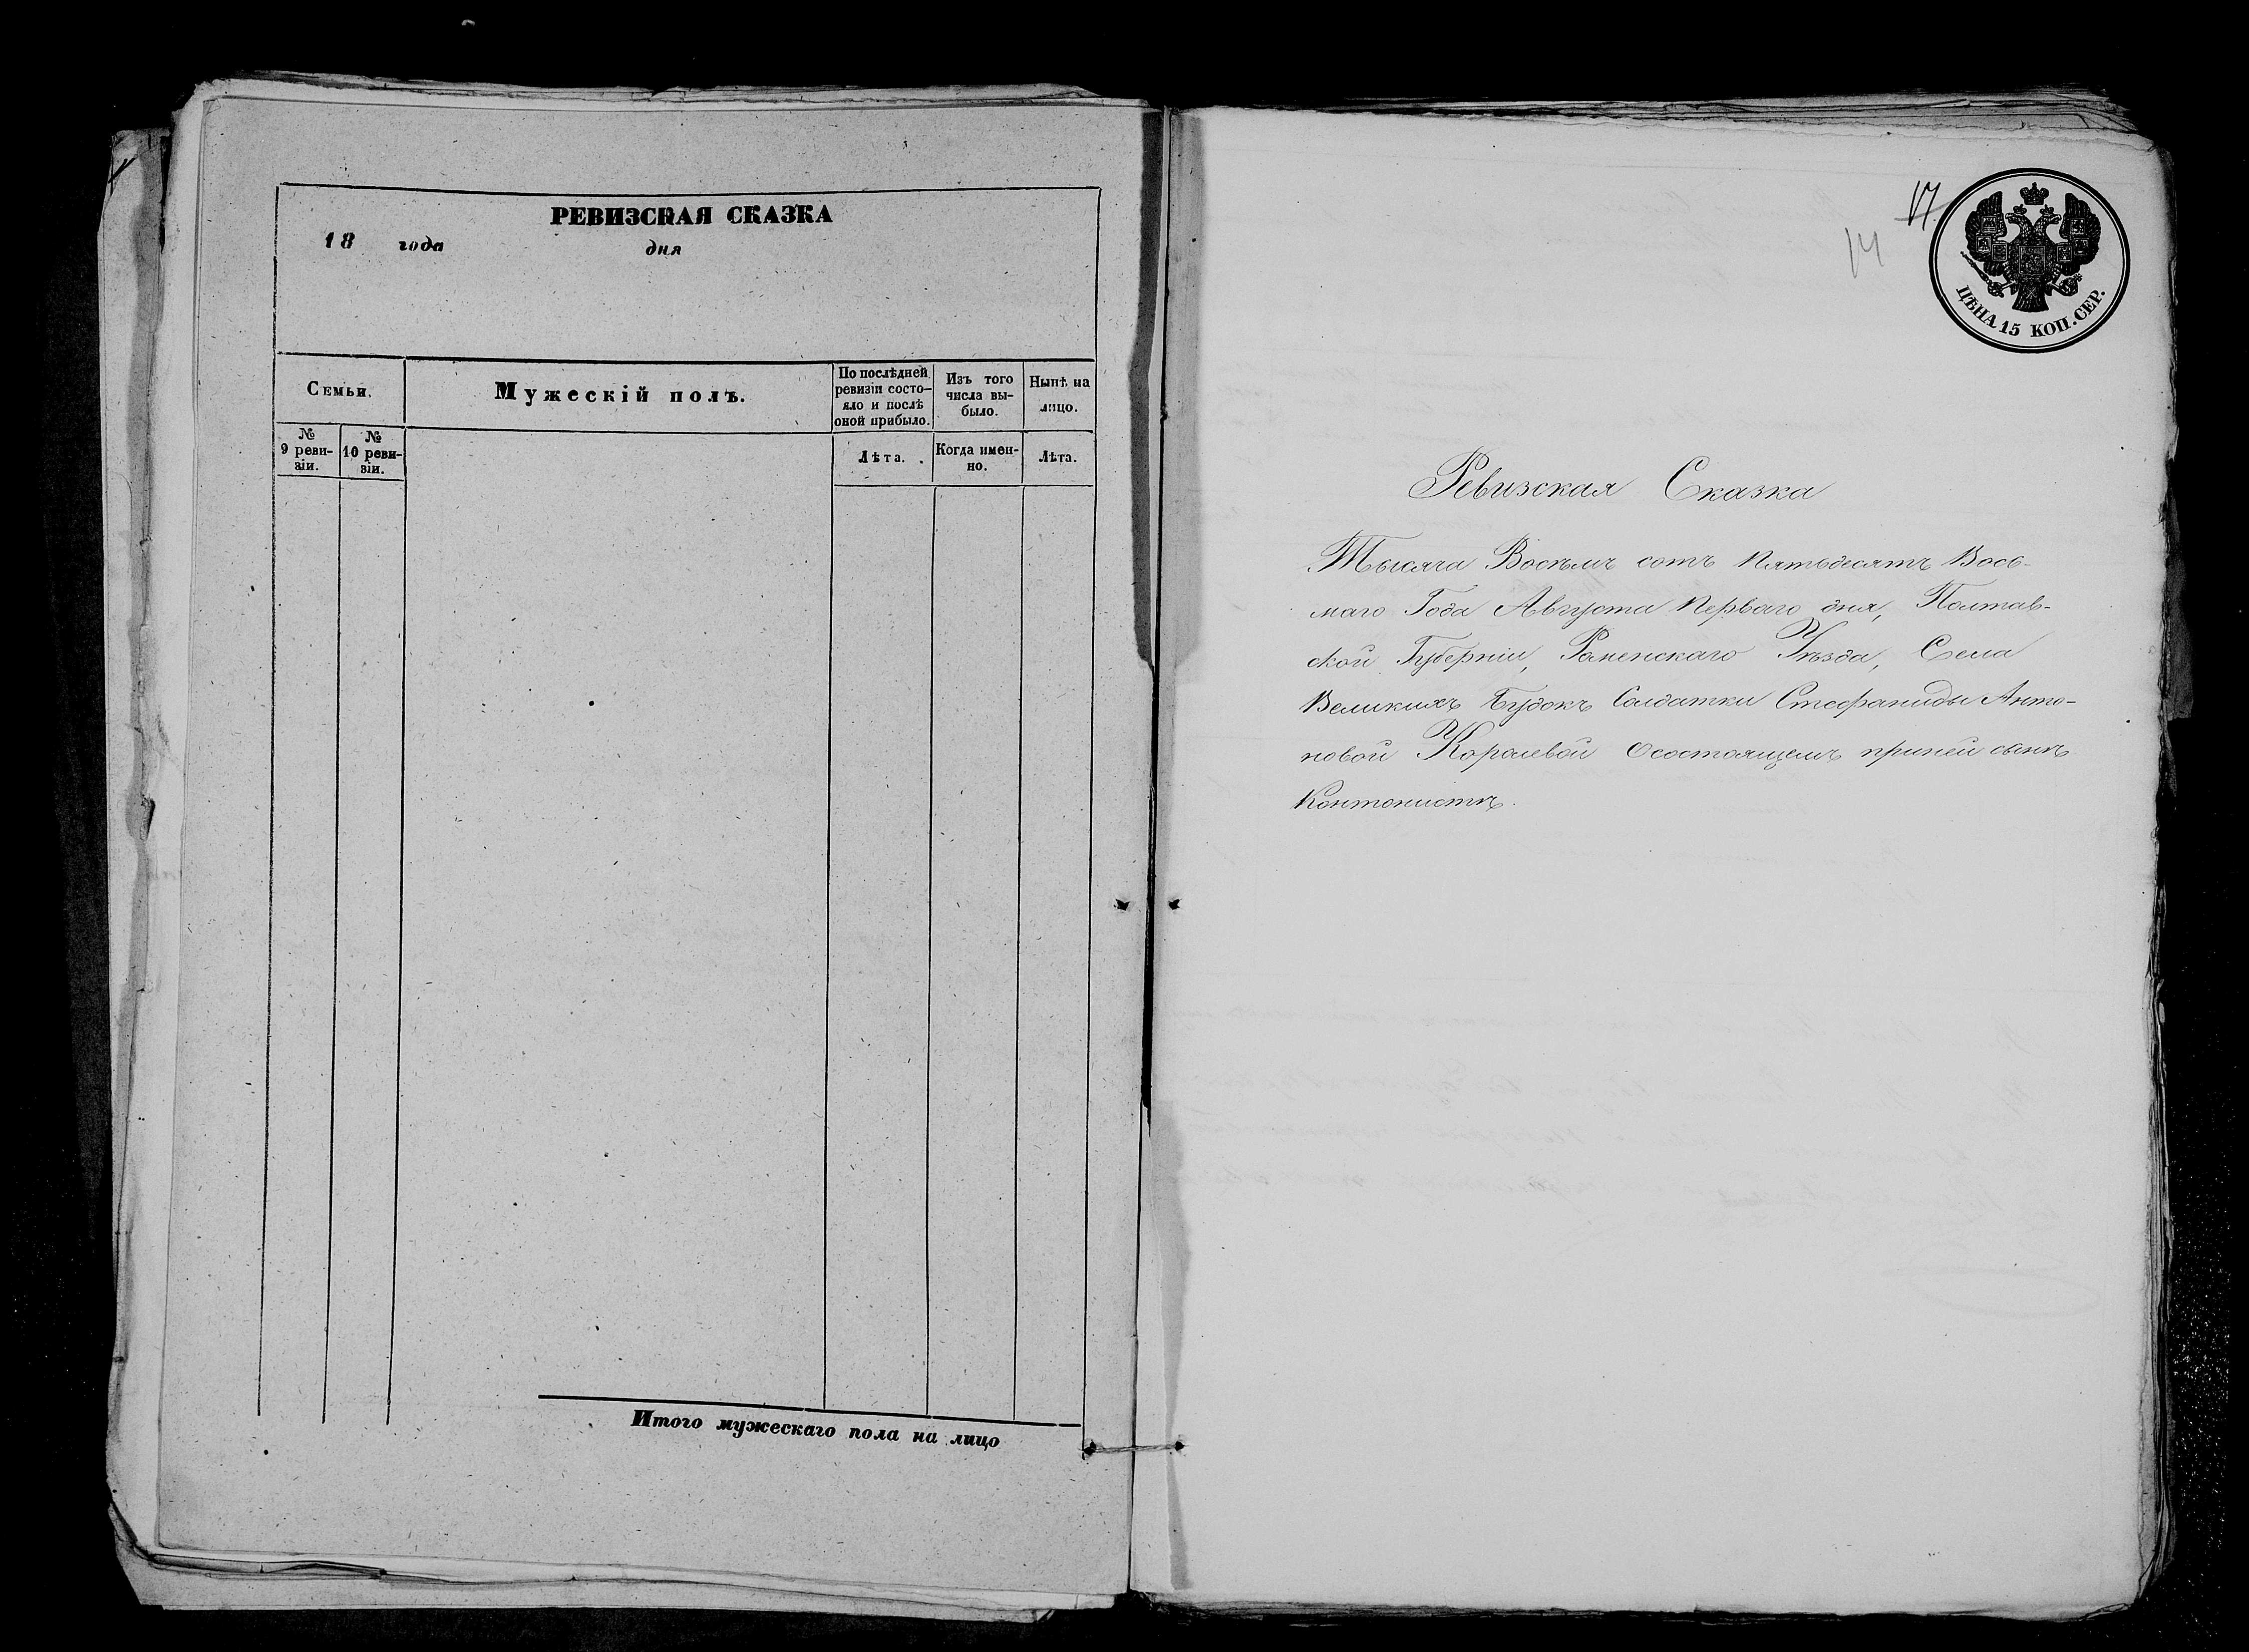 РЕВИЗСКАЯ СКАЗКА
18 года дня
Семьи.
№ 9 реви-
зіи.
№ 10 реви-
зіи.
Мужескій полъ.
По послѣдней
ревизіи состо-
яло и послѣ
оной прибыло.
Лѣта.
Изъ того
числа вы-
было.
Когда имен-
но.
Нынѣ на
лицо.
Лѣта.
Итого мужескаго пола на лицо
17
14
ЦѢНА 15 КОП. СЕР.
Ревизская Сказка
Тысяча Восемь сотъ Пятьдесятъ Вось-
маго Года Августа Перваго дня, Полтав-
ской Губерніи, Роменскаго Уѣзда, Села
Великихъ Будокъ Солдатки Стефаниды Анто-
новой Королевой Осостоящемъ приней сынѣ
Контонистѣ.